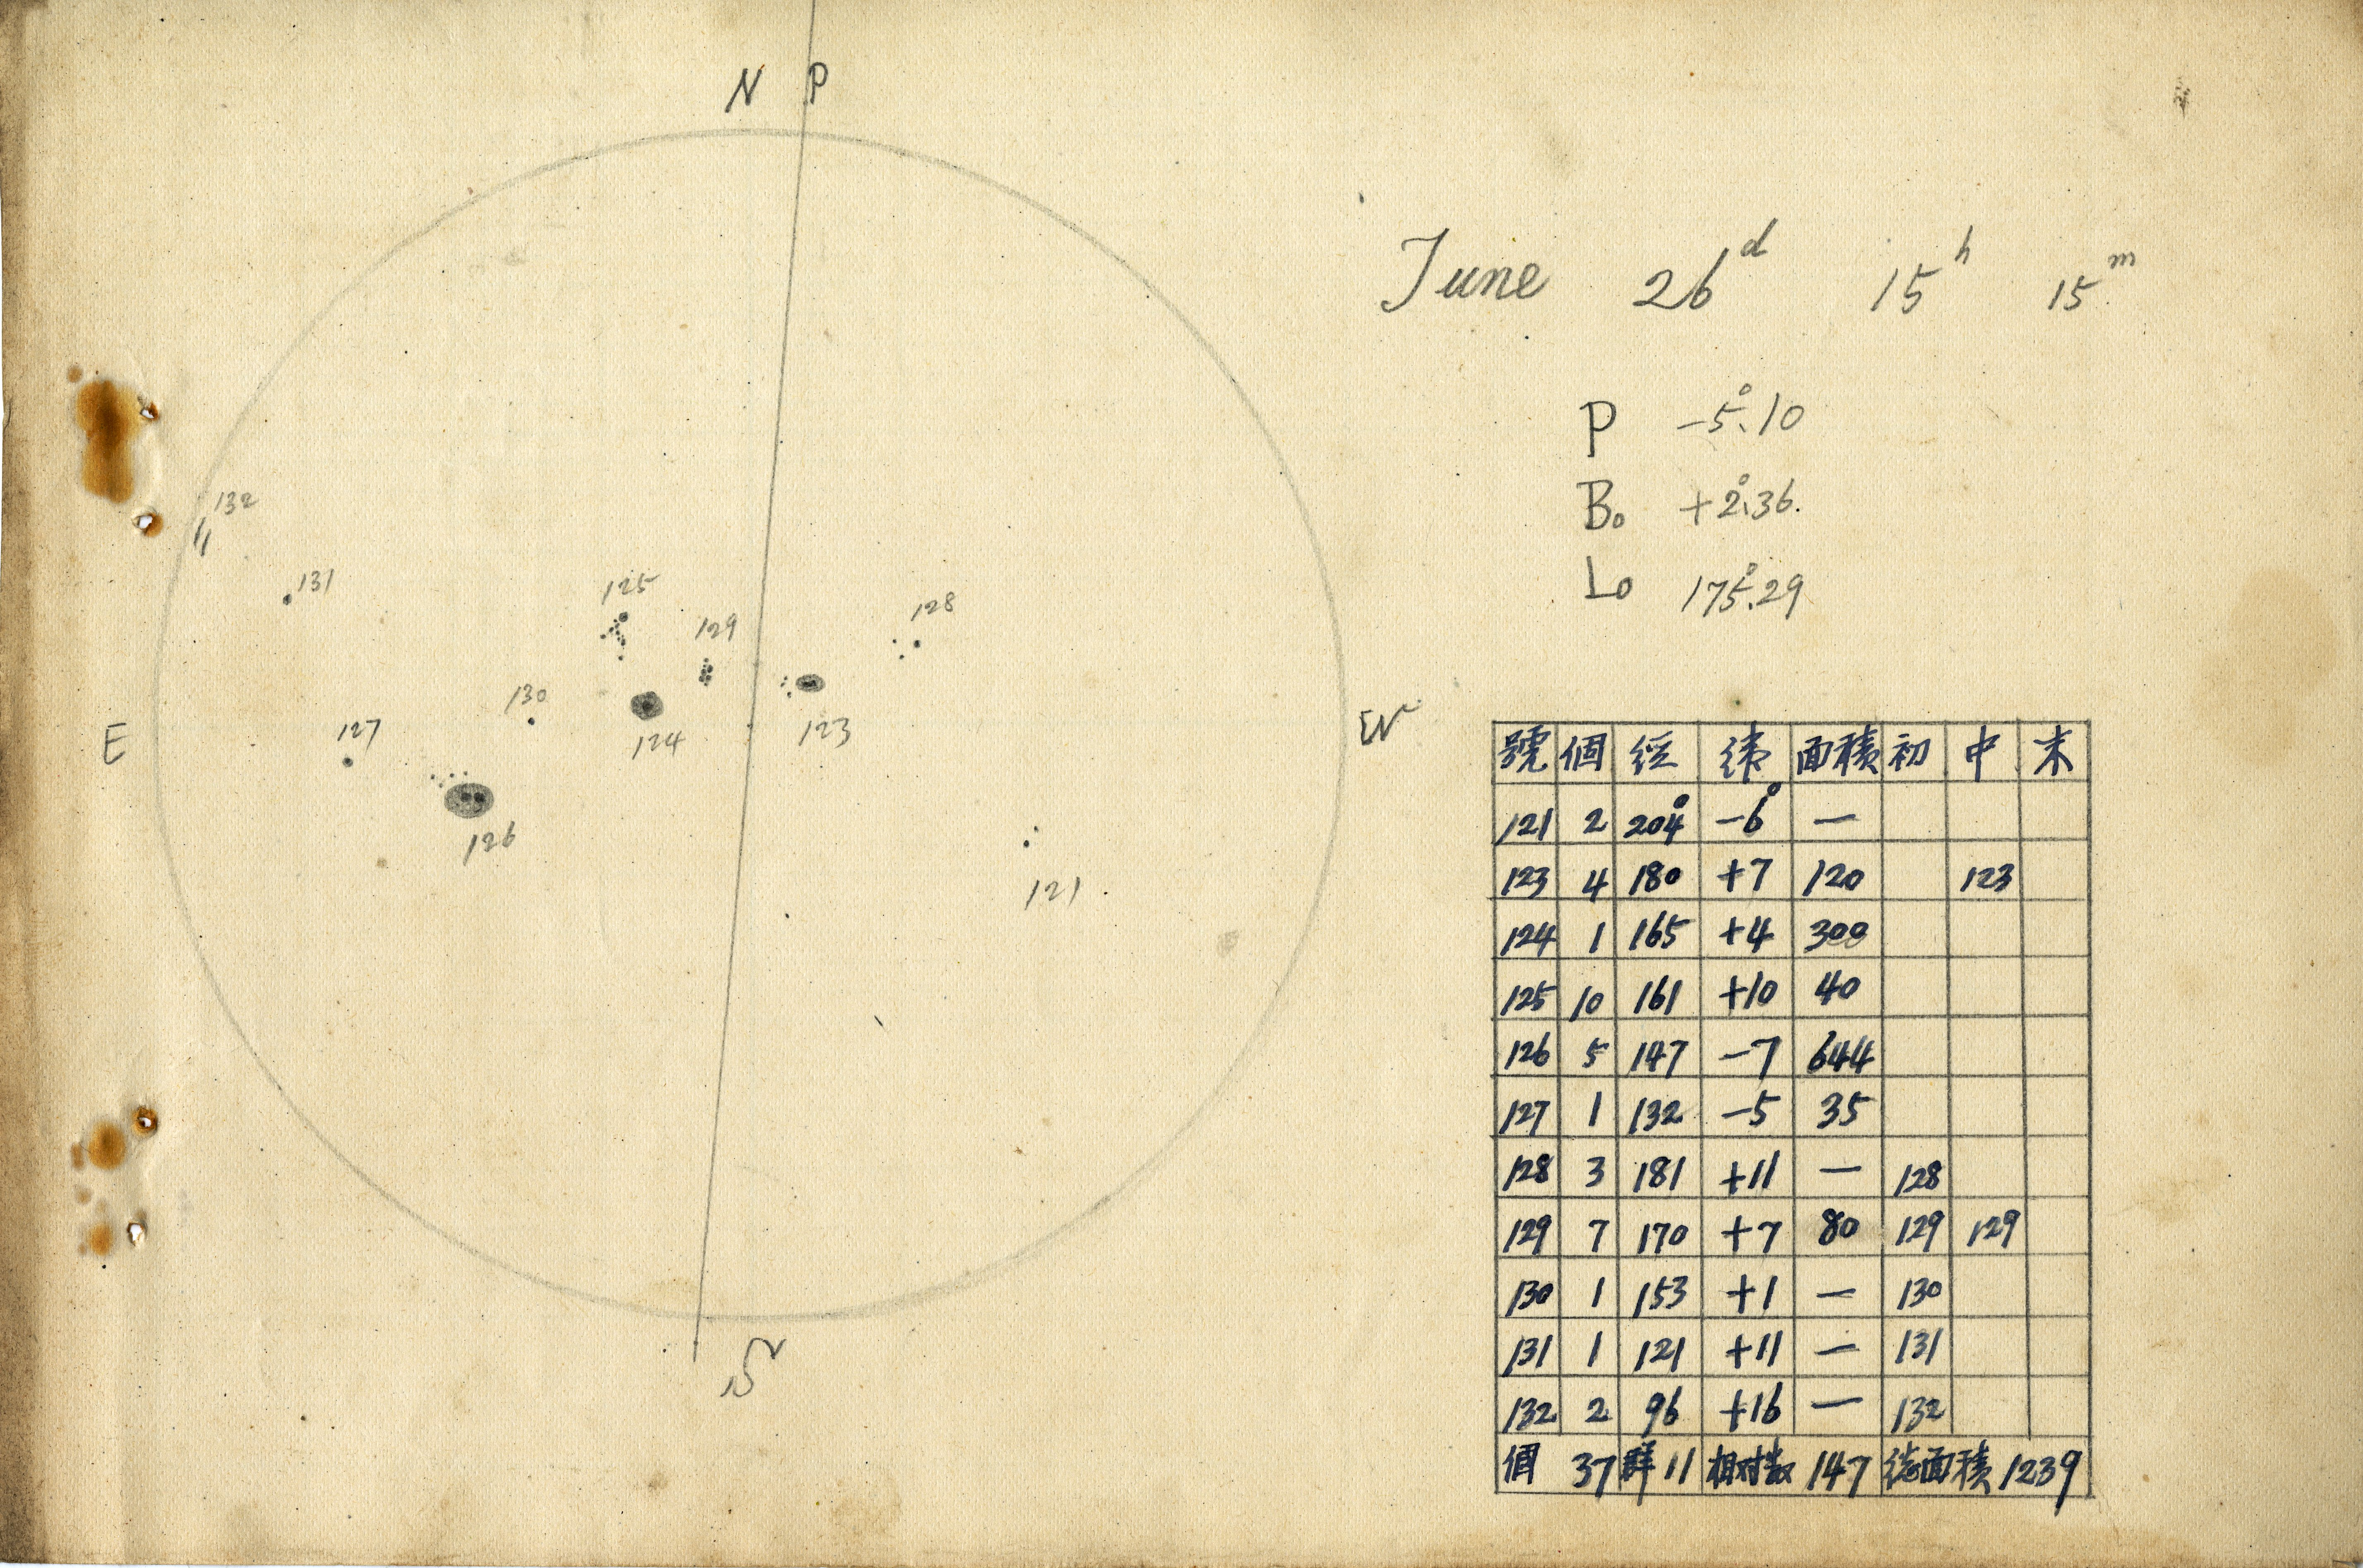 N P
June 26d 15h 15m
P -5°.10
B0 +2°.36.
L0 175°.29
132
131
125
128
129
130
127
124
123
E
W
126
121
S
號 個 経 緯 面積 初 中 末
121 2 204° -6° —
123 4 180 +7 120 123
124 1 165 +4 300
125 10 161 +10 40
126 5 147 -7 644
127 1 132 -5 35
128 3 181 +11 — 128
129 7 170 +7 80 129 129
130 1 153 +1 — 130
131 1 121 +11 — 131
132 2 96 +16 — 132
個 37 群 11 相対数 147 総面積 1239